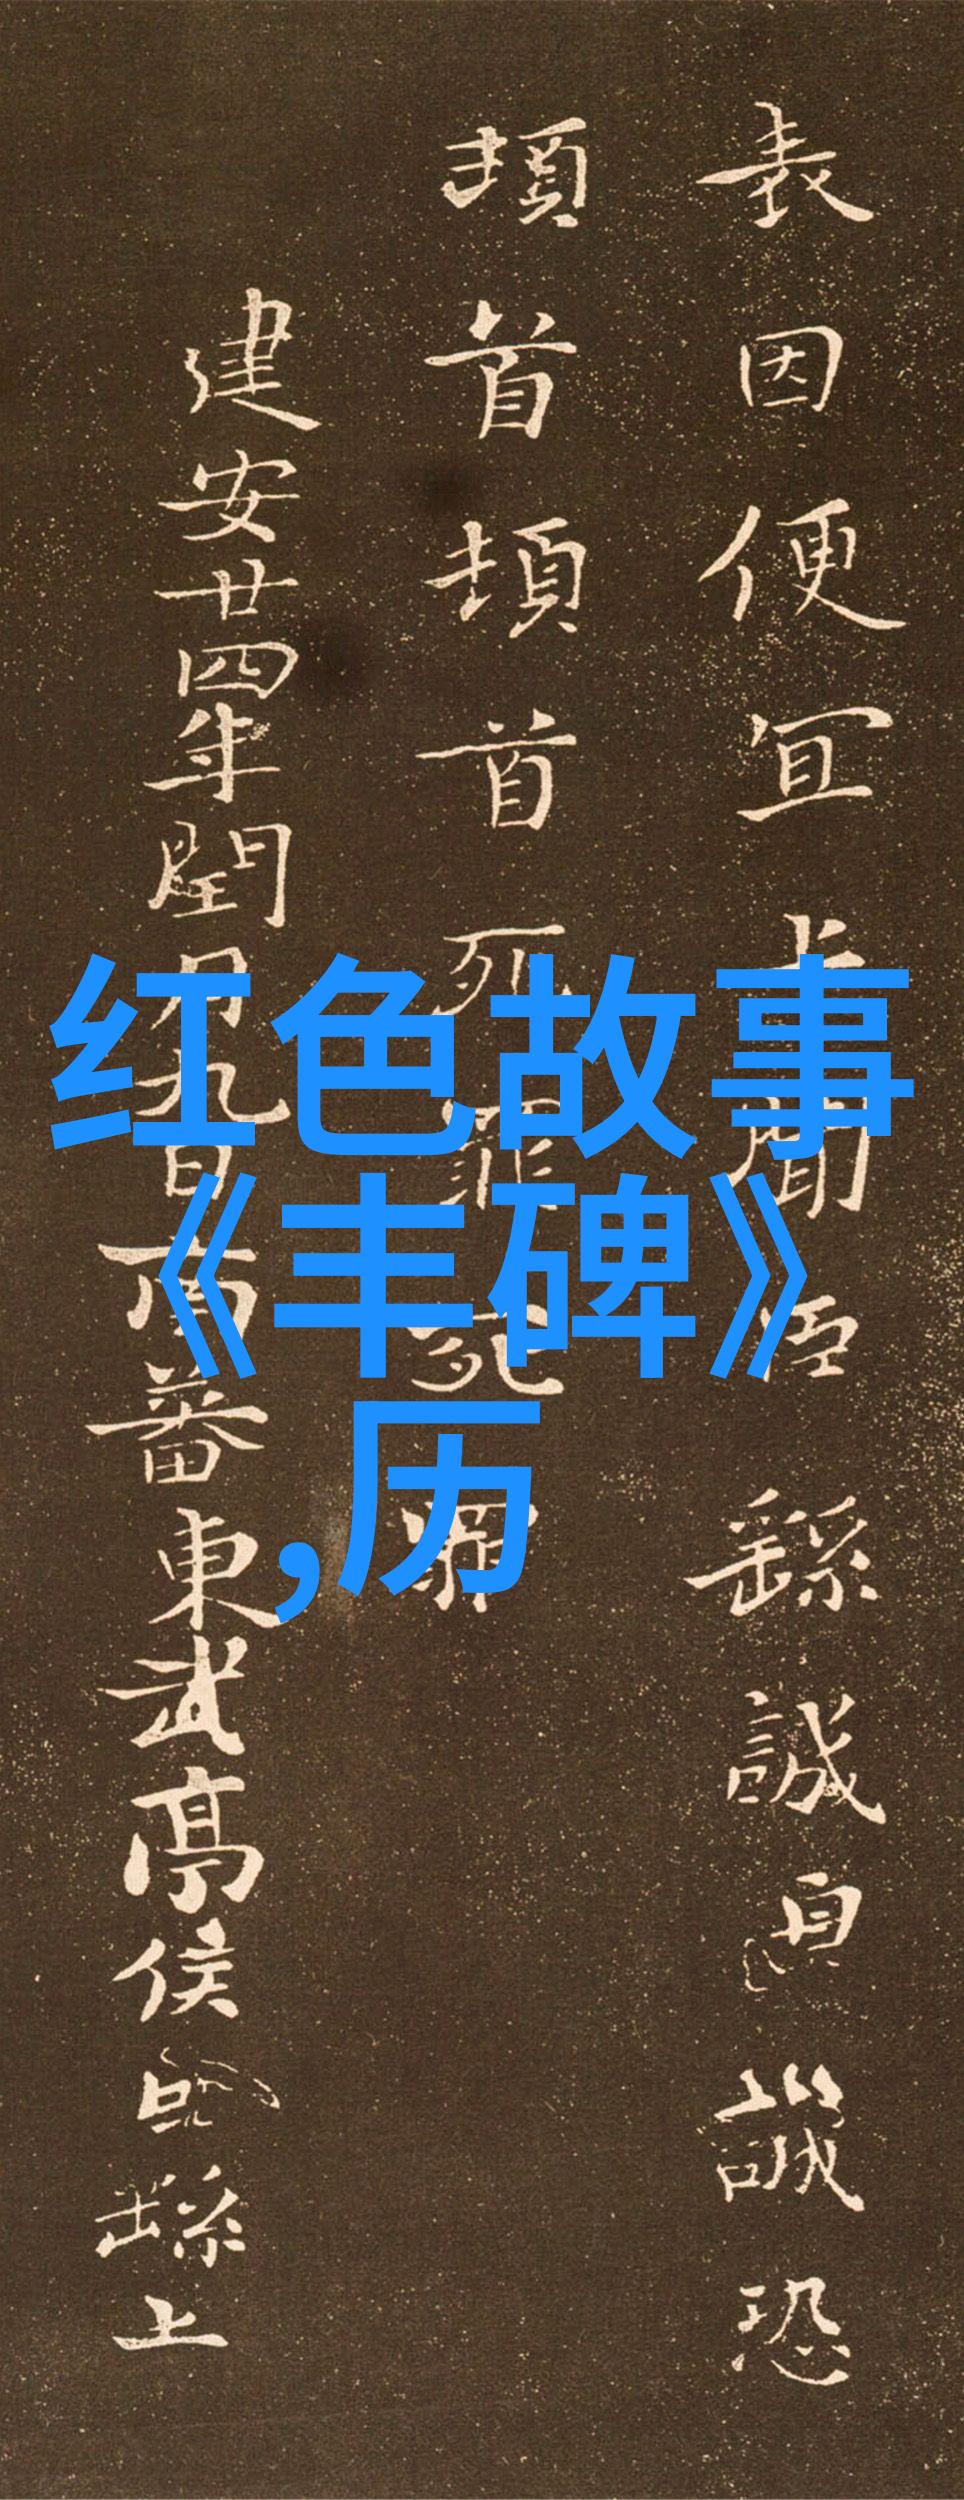 表因便宜上聞臣繇誠皇誠恐
頓首頓首死罪死罪
建安廿四年閏月九日南蕃東武亭侯臣繇上
红色故事
《丰碑》
,历